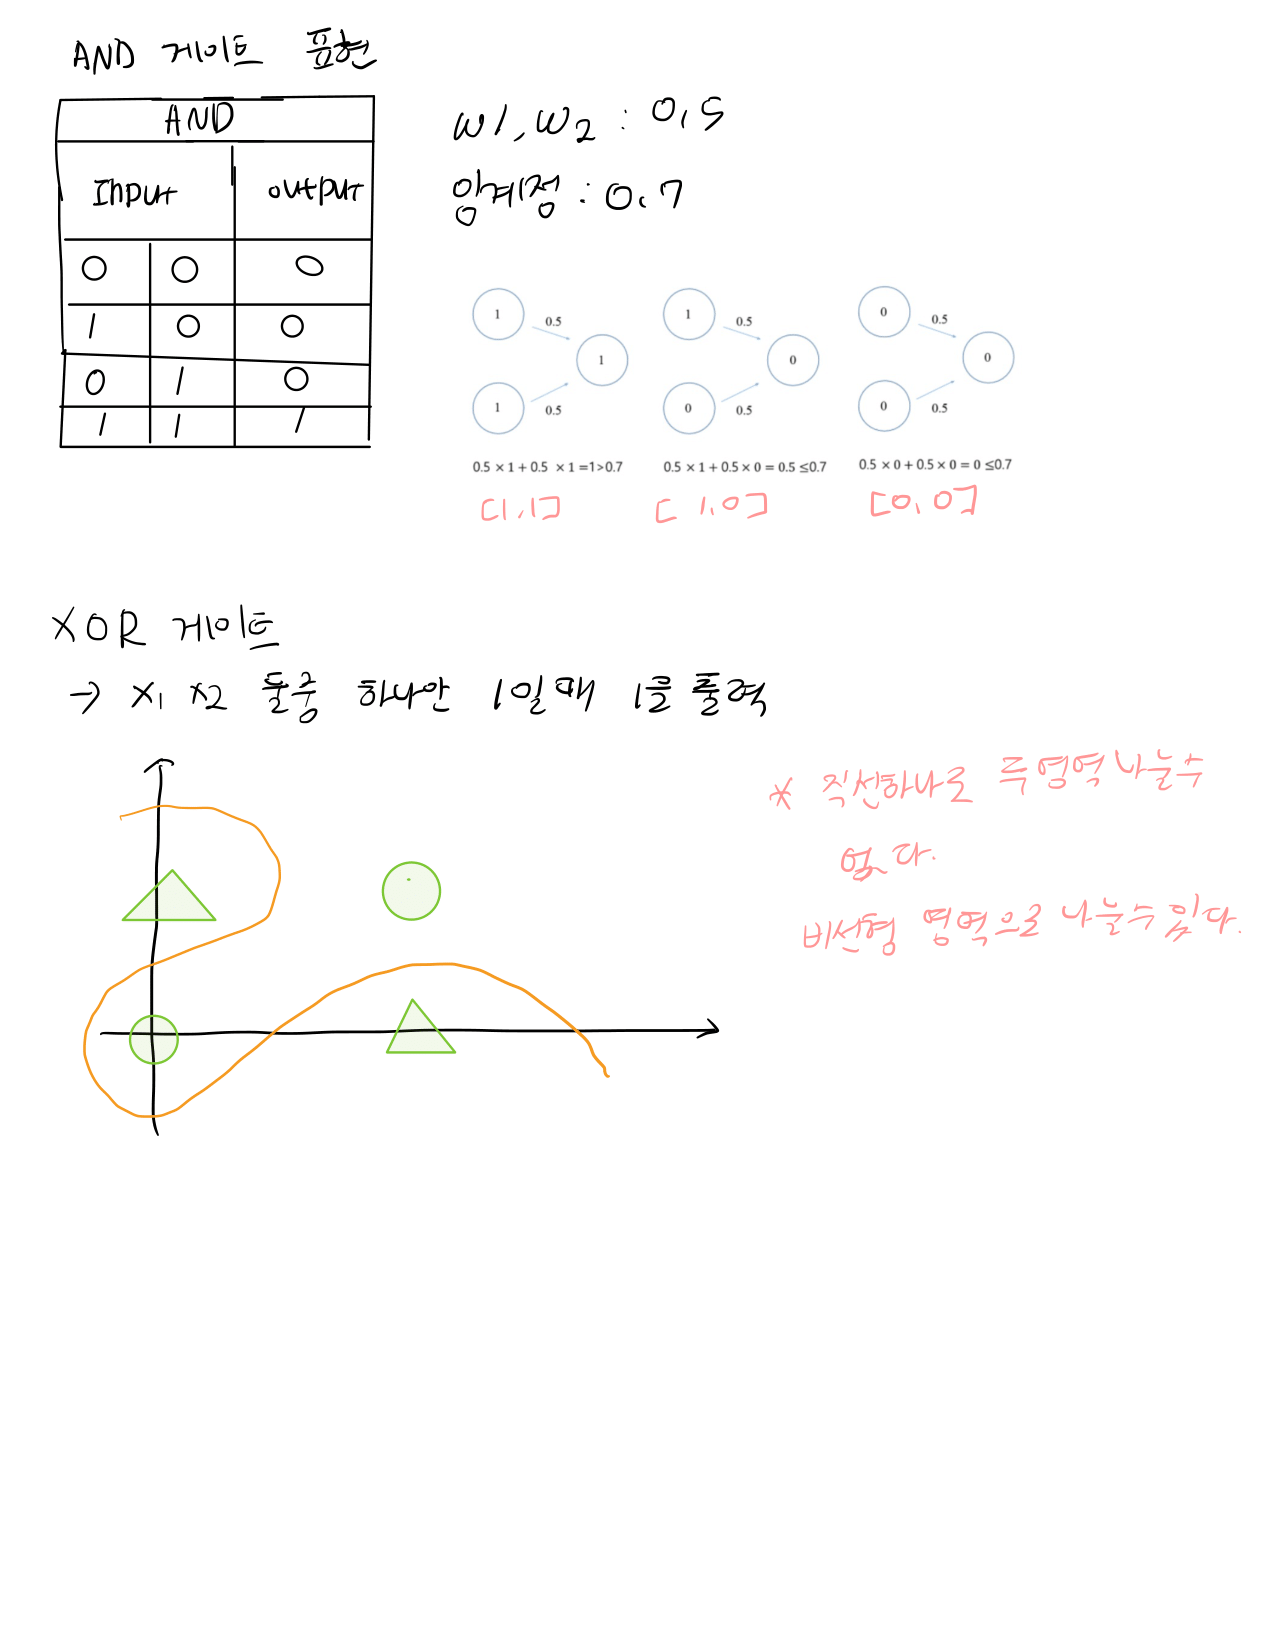 AND 게이트 표현
AND
Input output
0 0 0
1 0 0
0 1 0
1 1 1
w1, w2 : 0.5
임계점 : 0.7
1 0.5 1 1 0.5
1 0.5 0 0 0.5
0 0.5 0 0 0.5
0.5 × 1 + 0.5 × 1 =1>0.7
0.5 × 1 + 0.5 × 0 = 0.5 ≤0.7
0.5 × 0 + 0.5 × 0 = 0 ≤0.7
[1,1]
[1,0]
[0,0]
XOR 게이트
→ x1 x2 둘중 하나만 1일때 1을 출력
* 직선하나로 두영역 나눌수
없다.
비선형 영역으로 나눌수 있다.